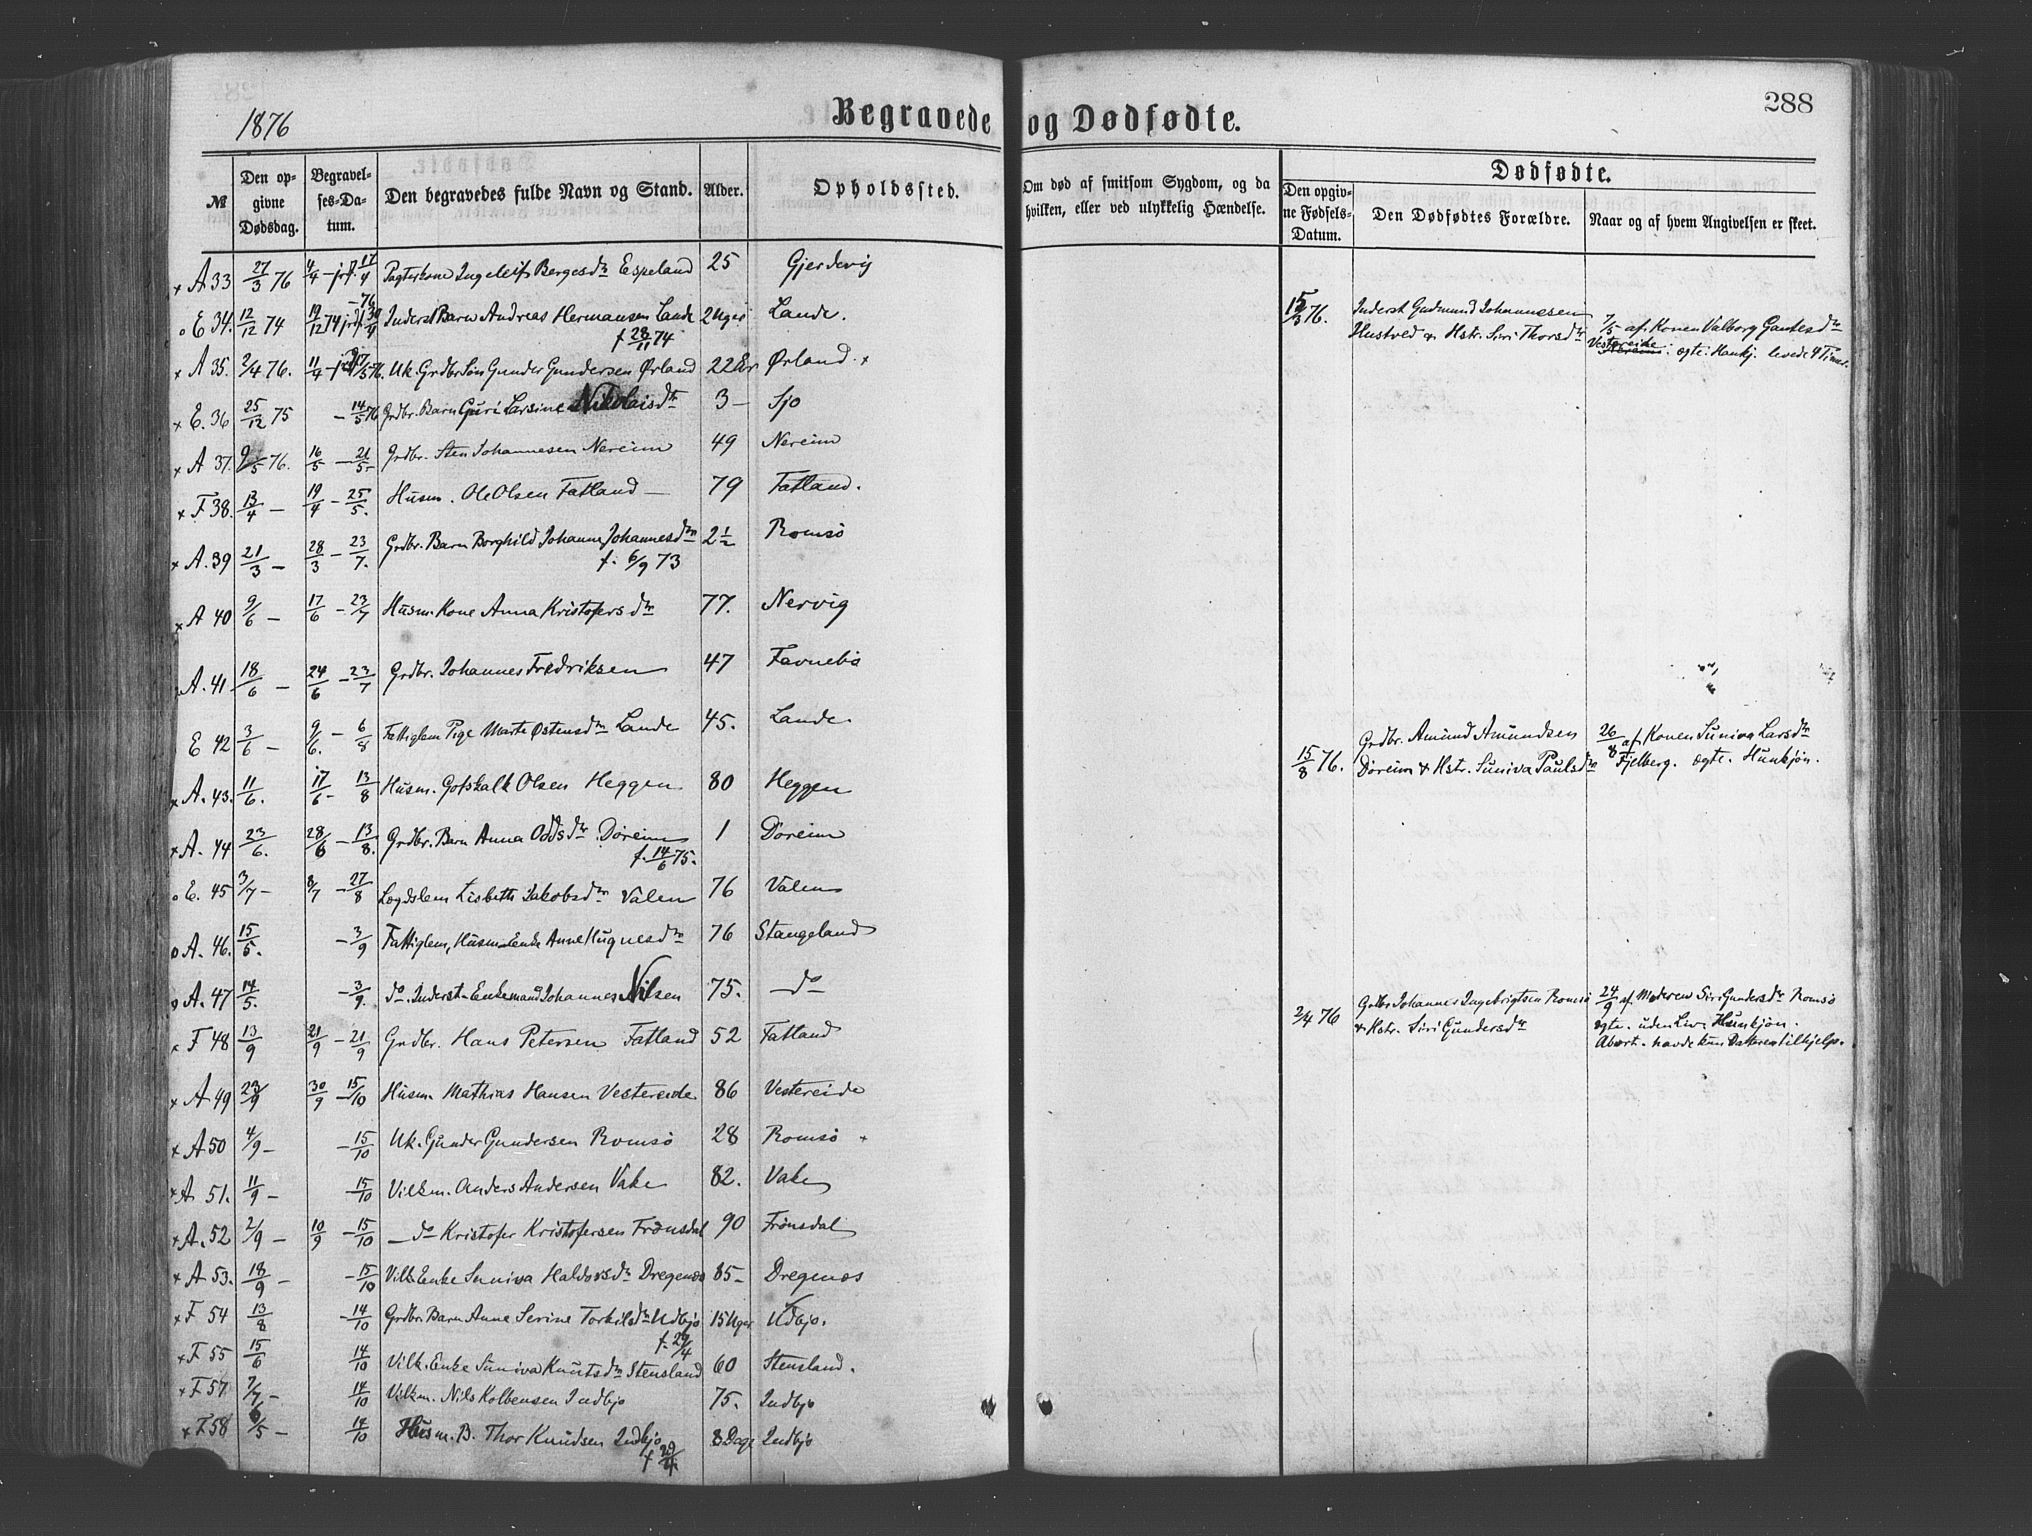 1876
Begravede og Dødfødte.
288
№
Den opgivne Dødsdag.
Begravelses-Datum.
Den begravedes fulde Navn og Stand.
Alder.
Opholdssted.
Om død af smitsom Sygdom, og da hvilken, eller ved ulykkelig Hændelse.
Dødfødte.
Den opgivne Fødsels-Datum.
Den Dødfødtes Forældre.
Naar og af hvem Angivelsen er skeet.
× A 33 27/3 76 4/4 – 17/4 Pagterkone Ingeleif Bergesdtr Espeland 25 Gjerdevig
o E 34. 12/12 74 19/12 74 –76 Inderst Barn Andreas Hermansen Lande 2 Uger Lande.
f 28/11 74
× A 35. 2/4 76. 11/4 – 17/5 76. Uk. Grdbr Søn Gunder Gundersen Ørland 22 Ørland. ×
× E. 36 25/12 75 – 14/5 76 Grdbr. Barn Guri Larsine Nikolaisdtr 3 – Sjo
× A 37. 9/5 76. 16/5 – 21/5 Grdbr. Sten Johannesen Nereim 49 Nereim
× F 38. 13/4 – 19/4 – 25/5. Husm. Ole Olsen Fatland – 79 Fatland.
× A. 39 21/3 – 28/3 – 23/7. Grdbr. Barn Borghild Johanne Johannesdtr 2½ Romsö
f. 6/9 73
× A 40 9/6 – 17/6 – 23/7 Husm. Kone Anna Kristofersdtr 77. Nervig
A. 41 18/6 – 24/6 – 23/7 Grdbr. Johannes Fredriksen 47 Favnebø
E 42 3/6 – 9/6. – 6/8 Fattiglem Pige Marte Østensdtr Lande 45. Lande.
× A. 43. 11/6. 17/6 – 13/8 Husm. Gotskalk Olsen Heggen 80 Heggen
× A. 44 23/6. 28/6 – 13/8. Grdbr. Barn Anna Oddsdtr Döreim 1 Döreim
f. 14/6 75.
o E. 45 3/7 – 8/7 – 27/8 Legdslem Lisbeth Jakobsdtr Valen 76 Valen
o A. 46. 15/5. – 3/9 Fattiglem, Husm. Enke Anne Hugnesdtr 76 Stangeland
o A. 47 14/5. – 3/9. do. Inderst-Enkemand Johannes Nilsen 75. – do
× F 48 13/9 21/9 – 21/9 Grdbr. Hans Petersen Fatland 52 Fatland
× A 49 23/9 30/9 – 15/10 Husm. Mathias Hansen Vestereide 86 Vestereide
× A 50 4/9 – – 15/10 Uk. Gunder Gundersen Romsö 28 Romsö ×
× A 51. 11/9 – 15/10 Vilkm. Anders Andersen Vake 82. Vake
× A. 52 2/9 – 10/9 – 15/10 – do Kristofer Kristofersen Frönsdal 90 Frönsdal
× A 53. 18/9 – – 15/10 Vilk Enke Suniva Haldorsdtr Dregenæs 85 – Dregenæs
× F 54 13/8 – 14/10 Grdbr Barn Anne Serine Torkilsdtr Udbjo 15 Uger Udbjo.
f. 29/4
× F 55 15/6 14/10 Vilk. Enke Suniva Knutsdtr Stensland 60 Stensland.
× F 57 7/7 – 14/10 Vilkm. Nils Kolbensen Indbjo 75. Indbjo
× F. 58 6/5 – 14/10 Husm. B. Thor Knudsen Indbjo 8 Dage Indbjo
f 29/4
15/3 76. Inderst Gudmund Johannesen
Hustved & Hstr. Siri Thorsdtr
7/5 af Konen Valborg Gautesdtr
Vestereide. ægte. Hankj. levede 4 Timer.
15/8 76. Grdbr. Amund Amundsen
Döreim & Hstr. Suniva Paulsdtr
26/8 af Konen Suniva Larsdtr
Fjelberg. ægte. Hunkjøn.
2/4 76 Grdbr Johannes Ingebrigtsen Romsö
& Hstr. Siri Gundersdtr
24/9 af Moderen Siri Gundersdtr Romsö
ægte. uden Liv. Hunkjøn.
Abort. havde kun Datteren til hjelp.